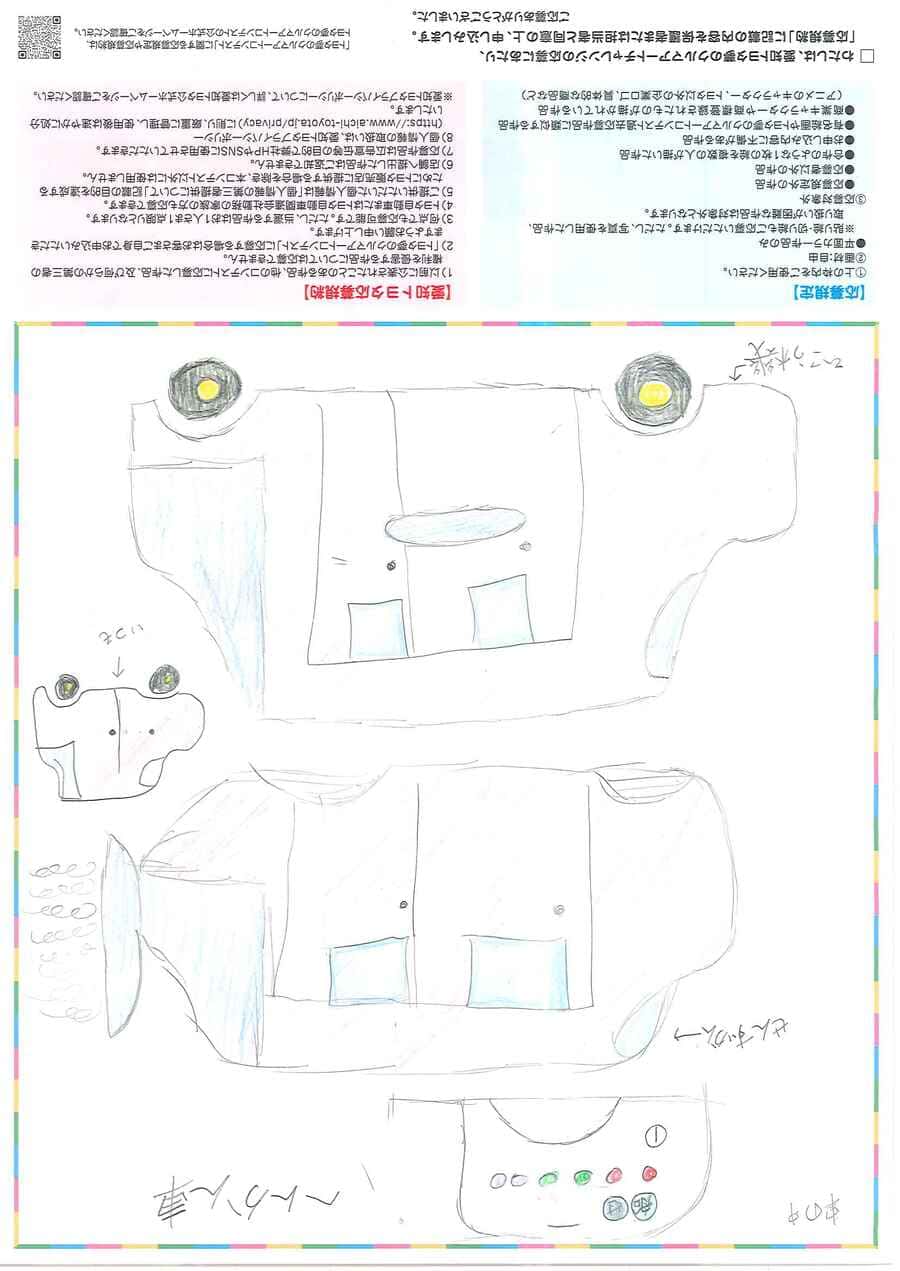 車の中
へんかん車
せんすいかん
いつも
【応募規定】
①上の枠内をご使用ください。
②画材:自由
●平面カラー作品のみ
※貼り絵・切り絵もご応募いただけます。ただし、写真を使用した作品、
取り扱いが困難な作品は対象外となります。
③応募対象外
●応募規定外の作品
●応募者以外の作品
●合作のような1枚の絵を複数の人が描いた作品
●お申し込み内容に不備がある作品
●有名絵画やトヨタ夢のクルマアートコンテスト過去応募作品に類似する作品
●商業キャラクターや商標登録されたものが描かれている作品
（アニメのキャラクター、トヨタ以外の企業ロゴ、具体的な商品など）
【愛知トヨタ応募規約】
1）以前に公表されたことのある作品、他のコンテストに応募した作品、及び何らかの第三者の
権利を侵害する作品については応募できません。
2）「トヨタ夢のクルマアートコンテスト」に応募する場合はお客さまご自身でお申込みいただき
ますようお願い申し上げます。
3）何点でも応募可能です。ただし、当選する作品はお1人さま1点限りとなります。
4）トヨタ自動車またはトヨタ自動車関連会社勤務の家族の方も応募できます。
5）ご提供いただいた個人情報は「個人情報の第三者提供について」記載の目的を達成する
ためにトヨタ販売店に提供する場合を除き、本コンテスト以外には使用しません。
6）店舗へ提出した作品はご返却できません。
7）応募作品は広告宣伝等の目的で弊社HPやSNSに使用させていただきます。
8）個人情報の取扱いは、愛知トヨタプライバシーポリシー
（https://www.aichi-toyota.jp/privacy）に則り、厳重に管理し、使用後は速やかに処分
いたします。
※愛知トヨタプライバシーポリシーについて、詳しくは愛知トヨタ公式ホームページをご確認ください。
□ わたしは、愛知トヨタ夢のクルマアートチャレンジの応募にあたり、
「応募規約」に記載の内容を保護者または担当者と同意の上、申し込みします。
ご応募ありがとうございました。
「トヨタ夢のクルマアートコンテスト」に関する応募規定や応募規約は、
トヨタ夢のクルマアートコンテストの公式ホームページをご確認ください。